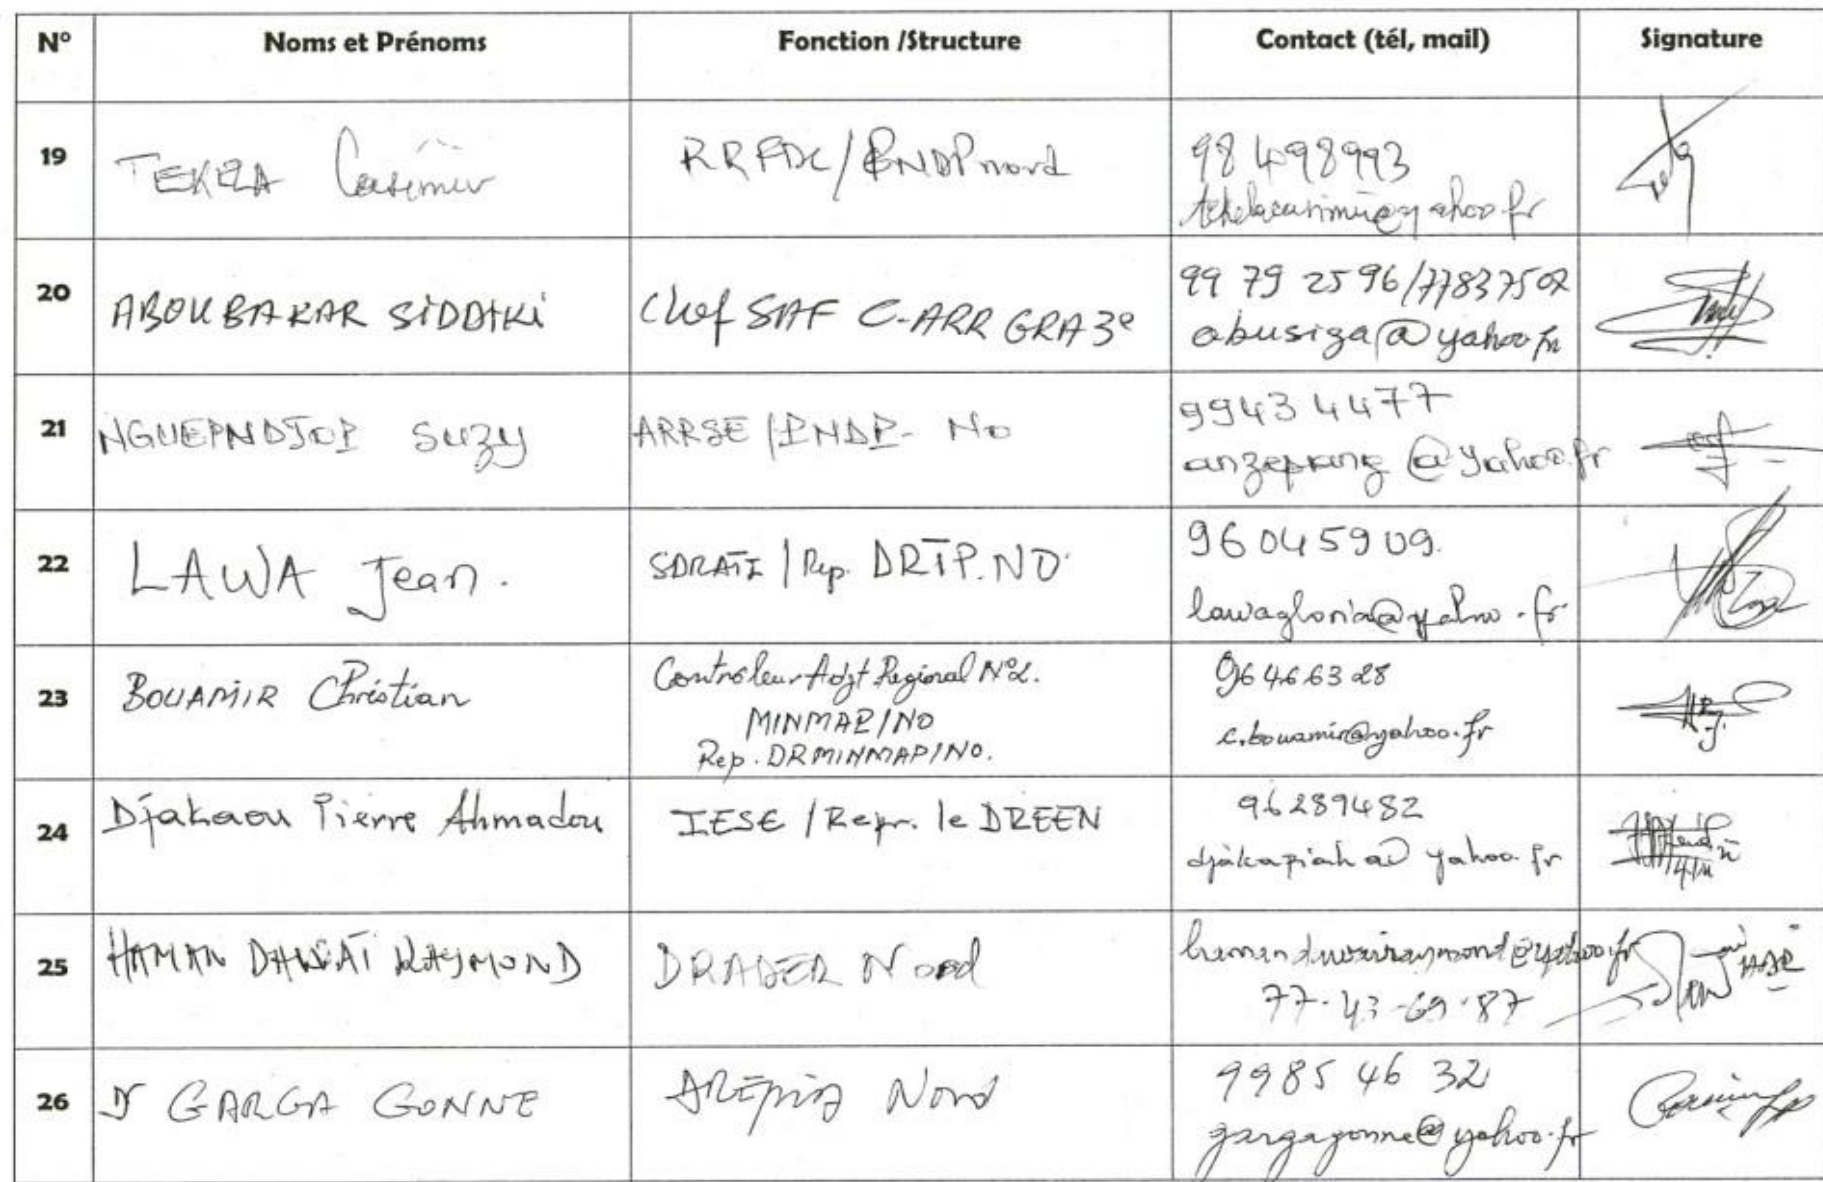 N° Noms et Prénoms Fonction /Structure Contact (tél, mail) Signature
19 TEKELA Casimir RRFDC/PNDP nord 98 498993
tekelacasimir@yahoo.fr
20 ABOUBAKAR SIDDIKI Chef SAF C-ARR GRA 3e 99 79 25 96/77837502
abusiga@yahoo.fr
21 NGUEPNDJOP Suzy ARRSE/PNDP-No 9943 4477
@yahoo.fr
22 LAWA Jean. SDRATI/Rep. DRTP.NO 96045909.
lawagloria@yahoo.fr
23 BOUAMIR Christian Contrôleur Adjt Régional N°2. 96466328
MINMAP/NO
c.bouamir@yahoo.fr
Rep. DRMINMAP/NO.
24 Djakaou Pierre Ahmadou IESE / Repr. le DREEN 96289482
djakapiah@yahoo.fr
25 HAMAN DAWAÏ RAYMOND DRADER Nord @yahoo.fr
77-43-69-87
26 Dr GARGA GONNE Nord 9985 46 32
gargagonne@yahoo.fr